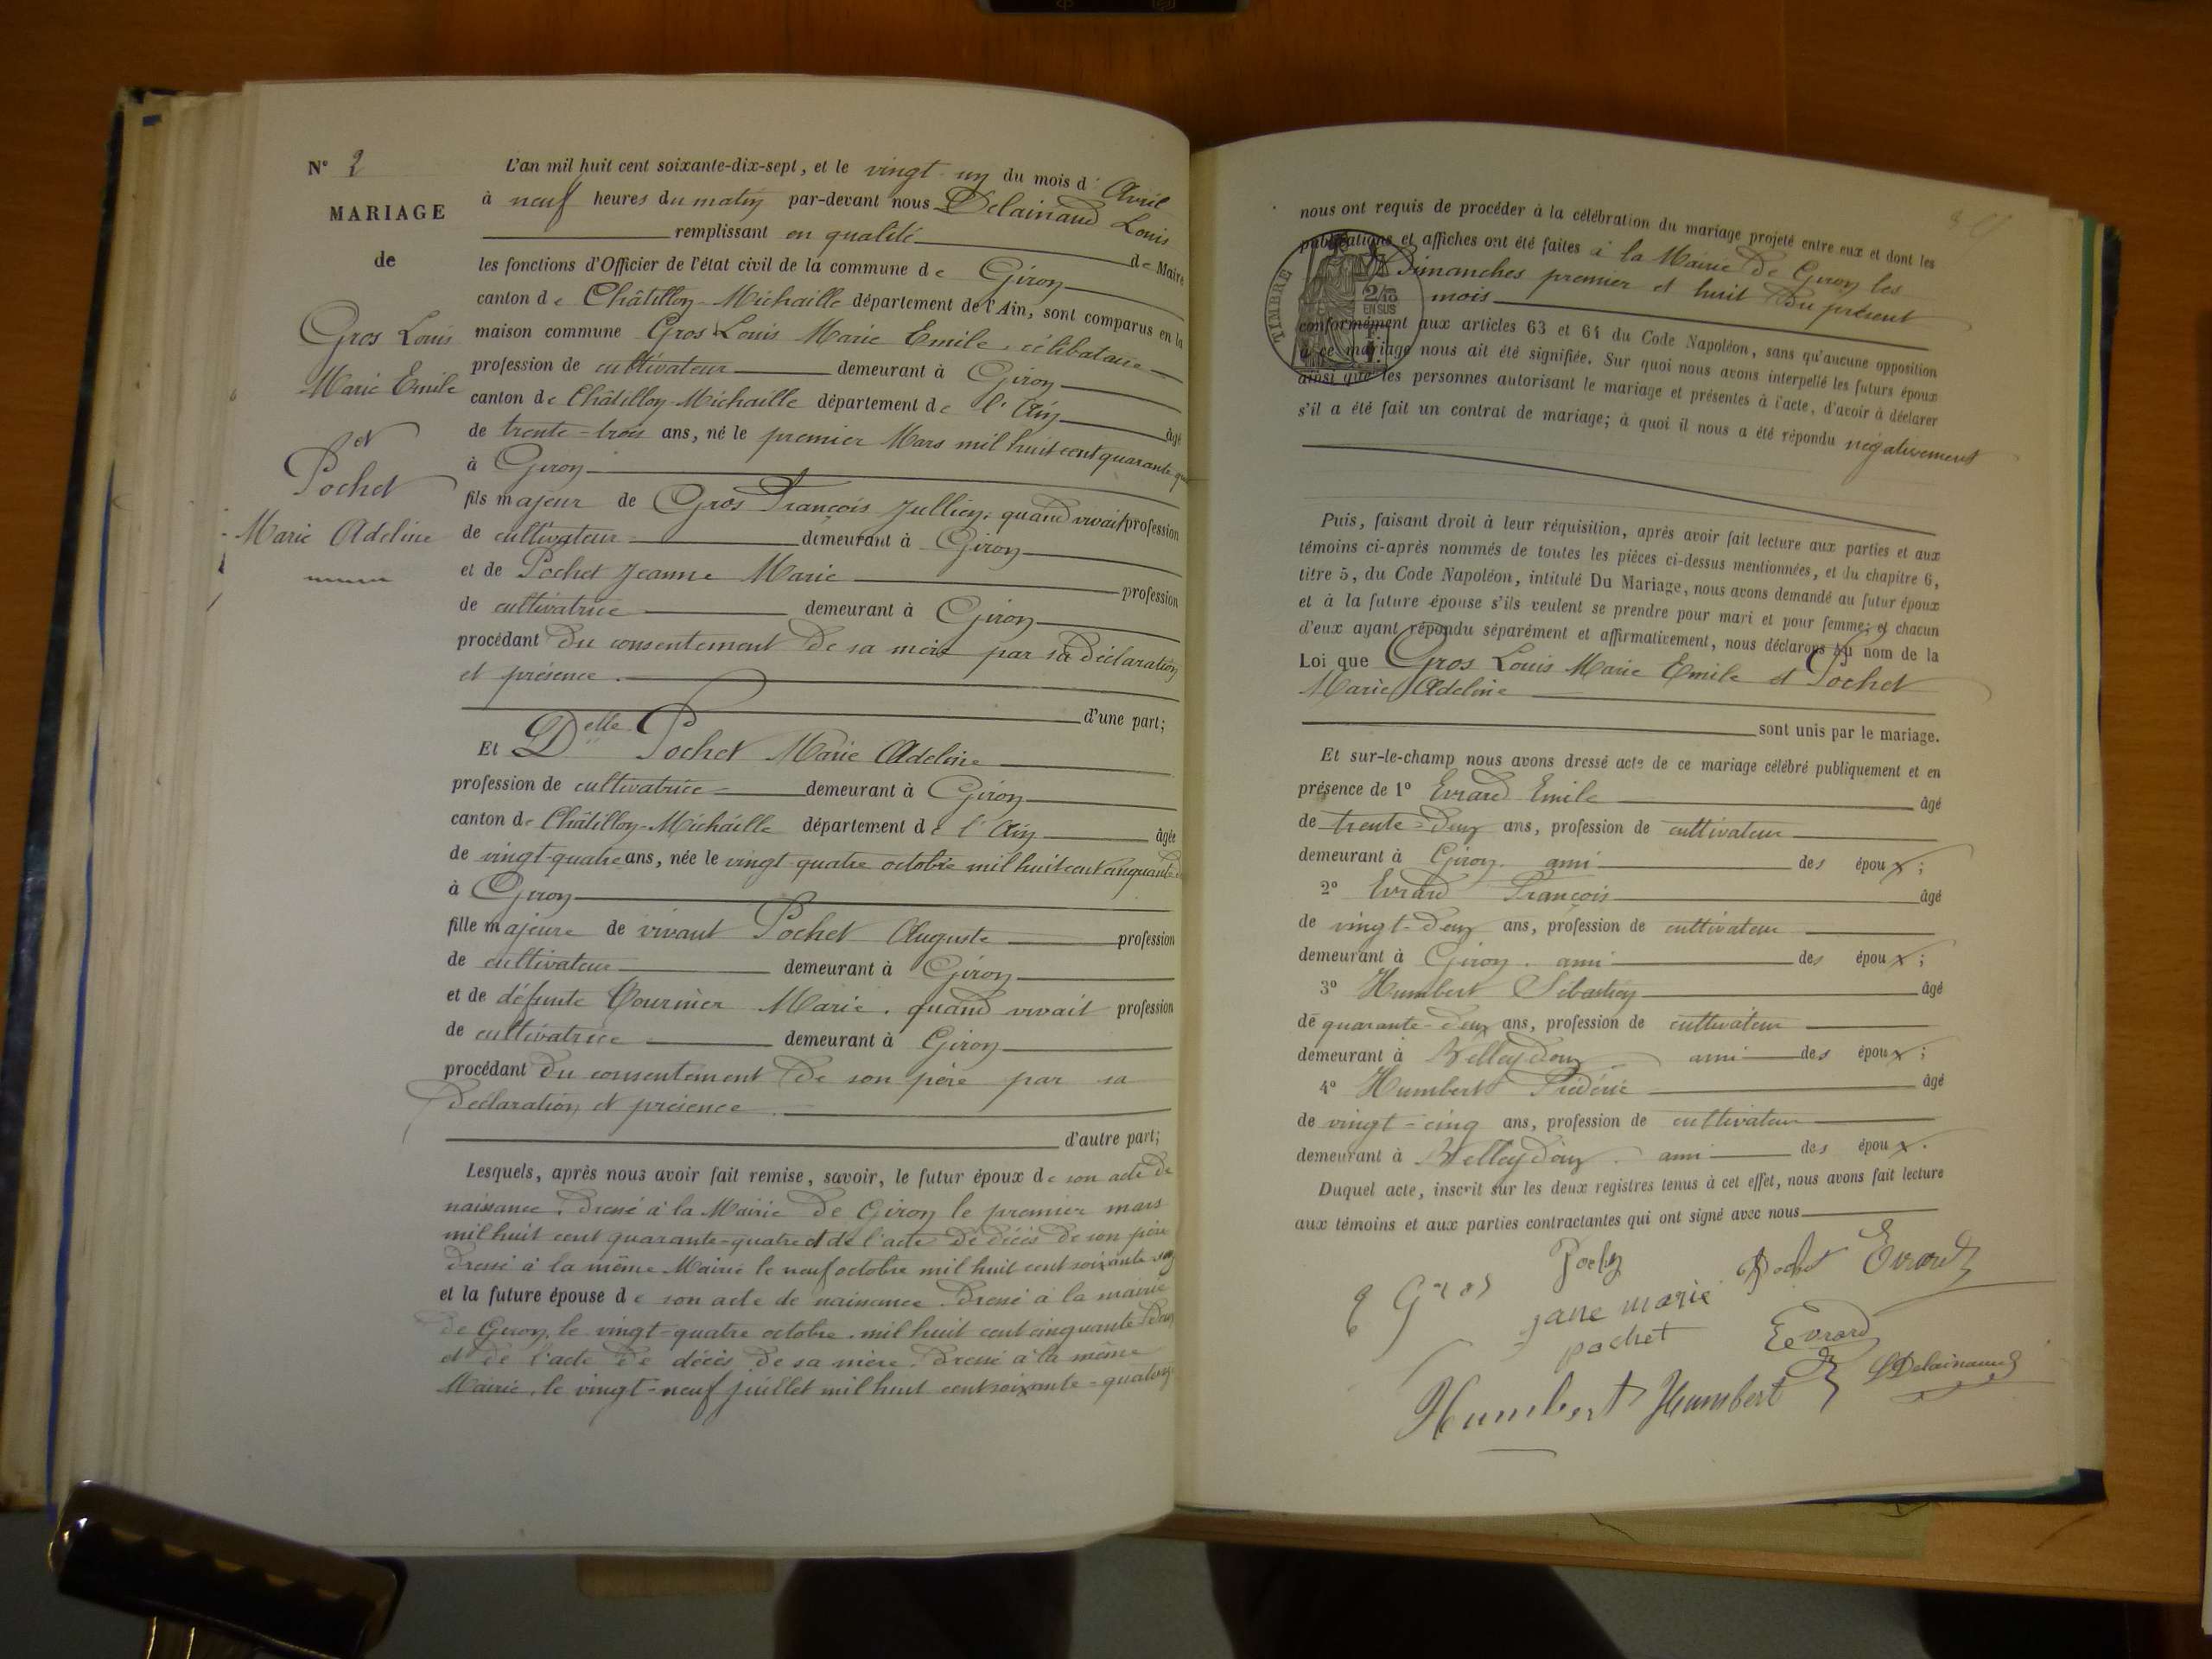 N° 2
MARIAGE
de
Gros Louis
Marie Emile
et
Pochet
Marie Adeline
L'an mil huit cent soixante-dix-sept, et le vingt-un du mois d' Avril
à neuf heures du matin par-devant nous Delainaud Louis
remplissant en qualité de Maire
les fonctions d'Officier de l'état civil de la commune de Giron
canton de Châtillon-Michaille département de l'Ain, sont comparus en la
maison commune Gros Louis Marie Emile, célibataire
profession de cultivateur demeurant à Giron
canton de Châtillon-Michaille département de l'Ain âgé
de trente-trois ans, né le premier Mars mil huit cent quarante-
à Giron
fils majeur de Gros François Jullien, quand vivait profession
de cultivateur demeurant à Giron
et de Pochet Jeanne Marie profession
de cultivatrice demeurant à Giron
procédant du consentement de sa mère par sa déclaration
et présence.
d'une part;
Et Delle Pochet Marie Adeline
profession de cultivatrice demeurant à Giron
canton de Châtillon-Michaille département de l'Ain âgée
de vingt-quatre ans, née le vingt-quatre octobre mil huit cent cinquante-
à Giron
fille majeure de vivant Pochet Auguste profession
de cultivateur demeurant à Giron
et de défunte Tournier Marie, quand vivait profession
de cultivatrice demeurant à Giron
procédant du consentement de son père par sa
déclaration et présence.
d'autre part;
Lesquels, après nous avoir fait remise, savoir, le futur époux de son acte de
naissance, dressé à la Mairie de Giron le premier mars
mil huit cent quarante-quatre et de l'acte de décès de son père
dressé à la même Mairie le neuf octobre mil huit cent soixante-
et la future épouse de son acte de naissance dressé à la mairie
de Giron, le vingt-quatre octobre mil huit cent cinquante-deux
et de l'acte de décès de sa mère dressé à la même
Mairie, le vingt-neuf juillet mil huit cent soixante-quatorze
nous ont requis de procéder à la célébration du mariage projeté entre eux et dont les
publications et affiches ont été faites à la Mairie de Giron les
Dimanches premier et huit du présent
mois
TIMBRE
2/10
EN SUS
conformément aux articles 63 et 64 du Code Napoléon, sans qu'aucune opposition
à ce mariage nous ait été signifiée. Sur quoi nous avons interpellé les futurs époux
ainsi que les personnes autorisant le mariage et présentes à l'acte, d'avoir à déclarer
s'il a été fait un contrat de mariage; à quoi il nous a été répondu négativement
Puis, faisant droit à leur réquisition, après avoir fait lecture aux parties et aux
témoins ci-après nommés de toutes les pièces ci-dessus mentionnées, et du chapitre 6,
titre 5, du Code Napoléon, intitulé Du Mariage, nous avons demandé au futur époux
et à la future épouse s'ils veulent se prendre pour mari et pour femme; et chacun
d'eux ayant répondu séparément et affirmativement, nous déclarons au nom de la
Loi que Gros Louis Marie Emile et Pochet
Marie Adeline
sont unis par le mariage.
Et sur-le-champ nous avons dressé acte de ce mariage célébré publiquement et en
présence de 1° Evrard Emile âgé
de trente-deux ans, profession de cultivateur
demeurant à Giron, ami des époux;
2° Evrard François âgé
de vingt-deux ans, profession de cultivateur
demeurant à Giron, ami des époux;
3° Humbert Sébastien âgé
de quarante-deux ans, profession de cultivateur
demeurant à Belleydoux ami des époux;
4° Humbert Frédéric âgé
de vingt-cinq ans, profession de cultivateur
demeurant à Belleydoux ami des époux.
Duquel acte, inscrit sur les deux registres tenus à cet effet, nous avons fait lecture
aux témoins et aux parties contractantes qui ont signé avec nous
Pochet Evrard
Gros
jane marie
pochet
Evrard
Humbert Humbert
LDelainaud